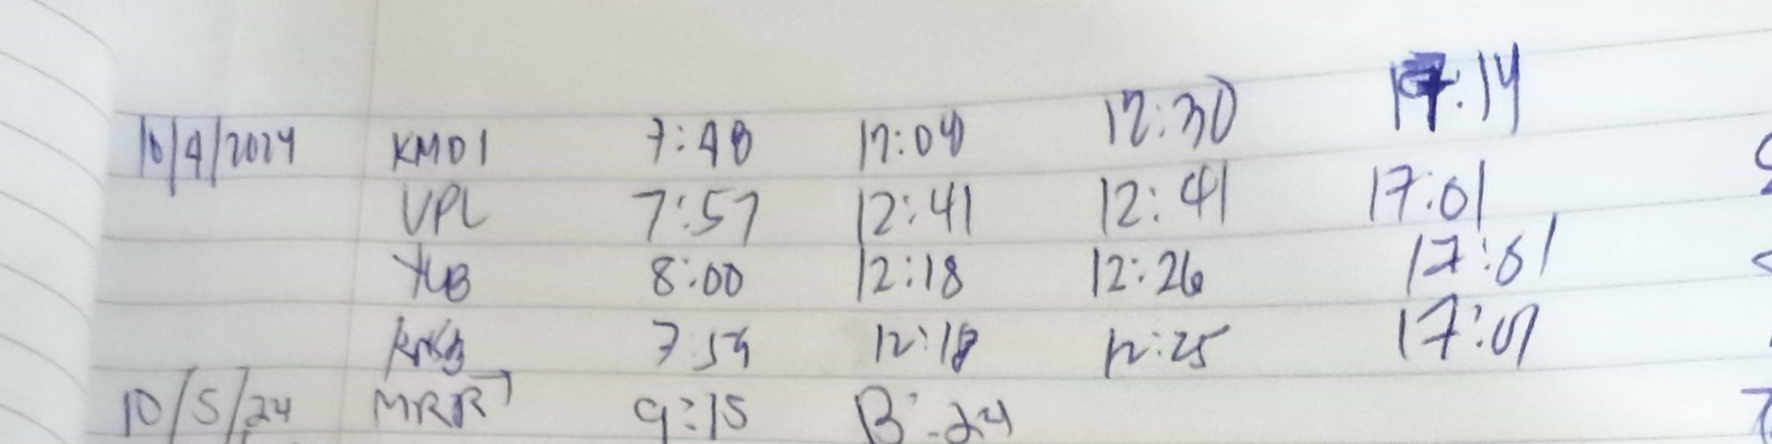 10/4/2024 KMD1 7:48 12:04 12:30 17:14
VPL 7:57 12:41 12:41 17:01
YLB 8:00 12:18 12:26 17:01
7:59 12:18 12:25 17:01
10/5/24 MRR 9:15 13:24